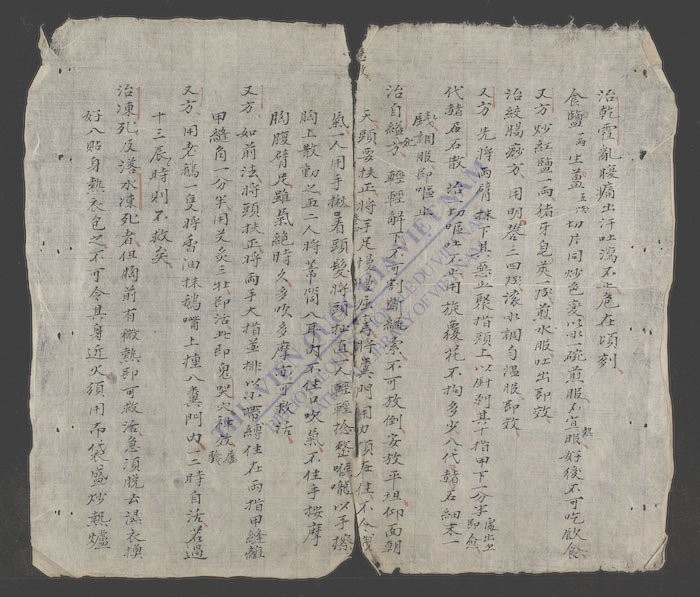 治乾霍亂腹痛出汗吐瀉不止危在頃刻
食鹽一兩生薑五戔切片同炒色变以水一碗煎服不宜熱服好後不可吃飲食
又方炒紅鹽一兩猪牙皂炭一戔煎水服吐出即效
治絞腸痧方用明礬三四戔滚水調勻温服即效
又方先将兩臂抹下其惡血聚指頭上以針刺其十指甲下一分半處出血即愈
代赭石散治切嘔吐不止用旋覆花不拘多少入代赭石細末一
戔調服即嘔止
治自縊方輕輕解下不可割斷繩索不可放倒安放平坦仰面朝
天頭要扶正将手足慢慢屈
氣一人用手揪着頭髮将頭扯直一人輕輕捻整喉嚨以手擦
胸上散動之再二人将葦筒入耳内不住口吹氣不住手按摩
胸腹臂足雖氣絶時久多吹多摩亦可救活
又方如前法将頭扶正将兩手大指並排以小帶縛住在兩指甲縫離
甲縫角一分半用艾灸三壮即活此即鬼哭穴
又方用老鵝一隻将香油抹鵝嘴上插入糞門内一二時自活若過
十三辰時則不救矣
治凍死及落水凍死者但胸前有微熱即可救活急須脱去濕衣換
好人貼身熱衣包之不可令其身近火須用布袋盛炒熱爐
THU VIEN QUOC GIA VIET NAM
BIBLIOTHEQUE NATIONALE DU VIETNAM
NATIONAL LIBRARY OF VIETNAM